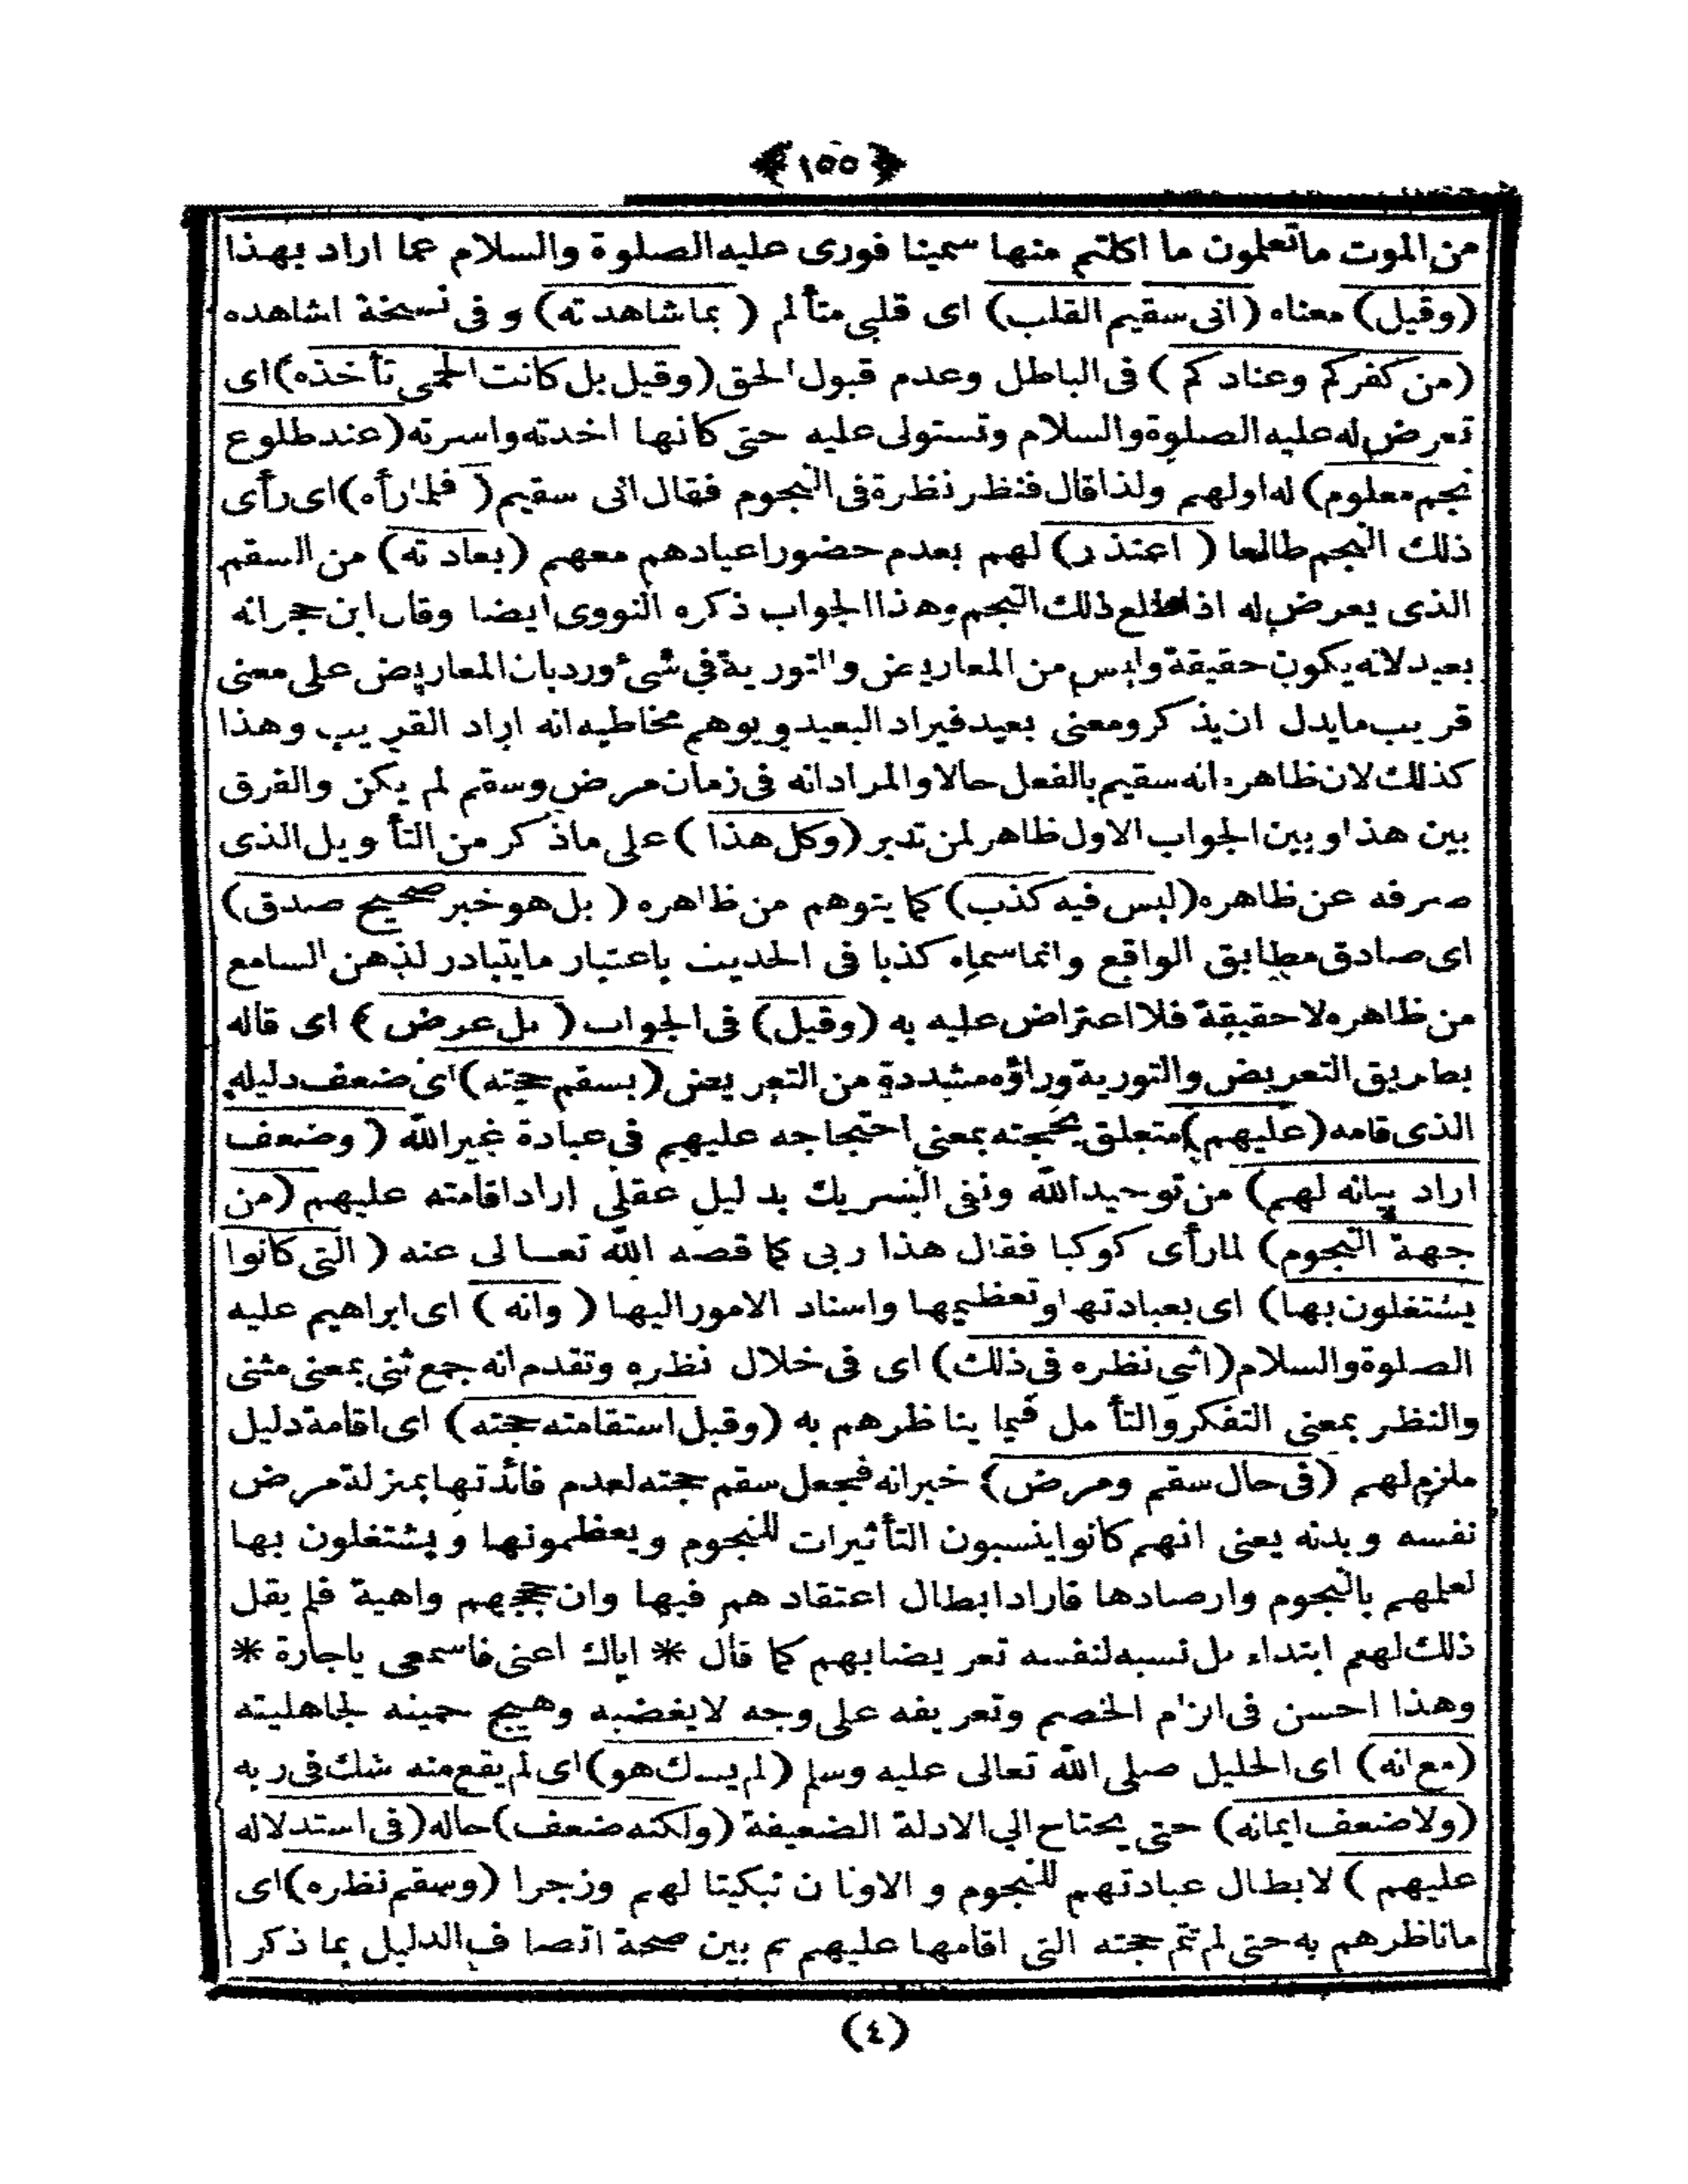 ﴿ ١٥٥ ﴾
من الموت ماتعلمون ما اكلتم منها سمينا فورى عليه الصلوة والسلام عما اراد بهذا
(وقيل) معناه (انى سقيم القلب) اى قلبى متألم ( بماشاهدته) و فى نسخة اشاهده
(من كفركم وعنادكم ) فى الباطل وعدم قبول الحق (وقيل بل كانت الحمى تأخذه) اى
تعرض له عليه الصلوة والسلام وتستولى عليه حتى كانها اخذته واسرته (عند طلوع
نجم معلوم) له اولهم ولذا قال فنظر نظرة فى النجوم فقال انى سقيم ( فلما رأه) اى رأى
ذلك النجم طالعا ( اعتذر) لهم بعدم حضور اعيادهم معهم (بعادته) من السقم
الذى يعرض له اذا طلع ذلك النجم وهذا الجواب ذكره النووى ايضا وقال ابن حجر انه
بعيد لانه يكون حقيقة وليس من المعاريض والتورية فى شئ ورد بان المعاريض على معنى
قريب مايدل ان يذكر ومعنى بعيد فيراد البعيد ويوهم مخاطبه انه اراد القريب وهذا
كذلك لان ظاهره انه سقيم بالفعل حالا والمراد انه فى زمان مرض وسقم لم يكن والفرق
بين هذا وبين الجواب الاول ظاهر لمن تدبر (وكل هذا ) على ماذكر من التأويل الذى
صرفه عن ظاهره (ليس فيه كذب) كما يتوهم من ظاهره ( بل هو خبر صحيح صدق)
اى صادق مطابق الواقع وانما سماه كذبا فى الحديث باعتبار مايتبادر لذهن السامع
من ظاهره لا حقيقة فلا اعتراض عليه به (وقيل) فى الجواب ( بل عرض ) اى قاله
بطريق التعريض والتورية وراؤه مشددة من التعريض (بسقم حجته) اى ضعف دليله
الذى قامه (عليهم) متعلق بحجته بمعنى احتجاجه عليهم فى عبادة غير الله ( وضعف
اراد بيانه لهم) من توحيد الله ونفى الشريك بدليل عقلى اراد اقامته عليهم (من
جهة النجوم) لما رأى كوكبا فقال هذا ربى كما قصه الله تعالى عنه ( التى كانوا
يشتغلون بها) اى بعبادتها وتعظيمها واسناد الامور اليها ( وانه ) اى ابراهيم عليه
الصلوة والسلام (اثنى نظره فى ذلك) اى فى خلال نظره وتقدم انه جمع ثنى بمعنى مثنى
والنظر بمعنى التفكر والتأمل فيما يناظرهم به (وقبل استقامته حجته) اى اقامة دليل
ملزم لهم (فى حال سقم ومرض) خبر انه فجعل سقم حجته لعدم فائدتها بمنزلة مرض
نفسه وبدنه يعنى انهم كانوا ينسبون التأثيرات للنجوم ويعظمونها ويشتغلون بها
لعلمهم بالنجوم وارصادها فاراد ابطال اعتقادهم فيها وان حججهم واهية فلم يقل
ذلك لهم ابتداء بل نسبه لنفسه تعريضا بهم كما قال * اياك اعنى فاسمعى ياجارة *
وهذا احسن فى الزام الخصم وتعريفه على وجه لايغضبه وهيج حميته لجاهليته
(مع انه) اى الخليل صلى الله تعالى عليه وسلم (لم يشك هو) اى لم يقع منه شك فى ربه
(ولا ضعف ايمانه) حتى يحتاج الى الادلة الضعيفة (ولكنه ضعف) حاله (فى استدلاله
عليهم ) لابطال عبادتهم للنجوم و الاوثان تبكيتا لهم وزجرا (وسقم نظره) اى
ماناظرهم به حتى لم تتم حجته التى اقامها عليهم ثم بين صحة اتصاف الدليل بما ذكر
(٤)